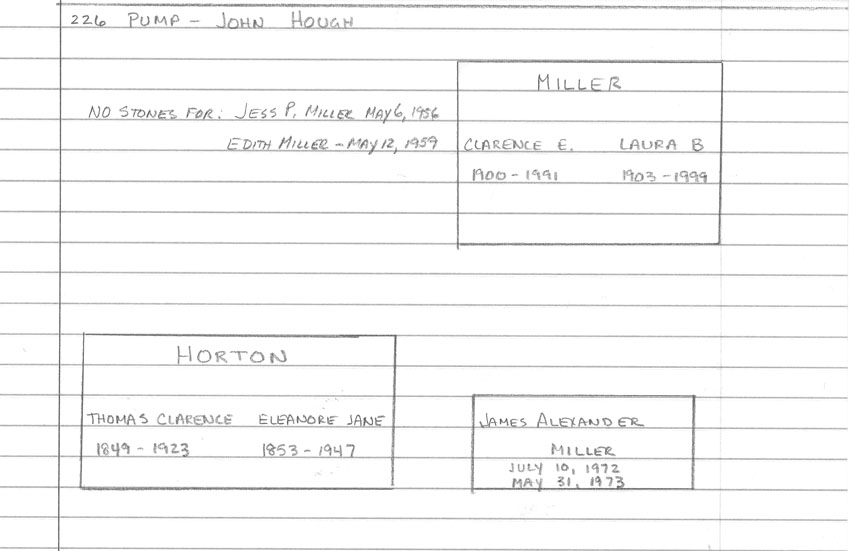 226 PUMP - JOHN HOUGH
MILLER
NO STONES FOR: JESS P. MILLER MAY 6, 1956
EDITH MILLER - MAY 12, 1959
CLARENCE E. LAURA B
1900 - 1991 1903 - 1999
HORTON
THOMAS CLARENCE ELEANORE JANE
1849 - 1923 1853 - 1947
JAMES ALEXANDER
MILLER
JULY 10, 1972
MAY 31, 1973